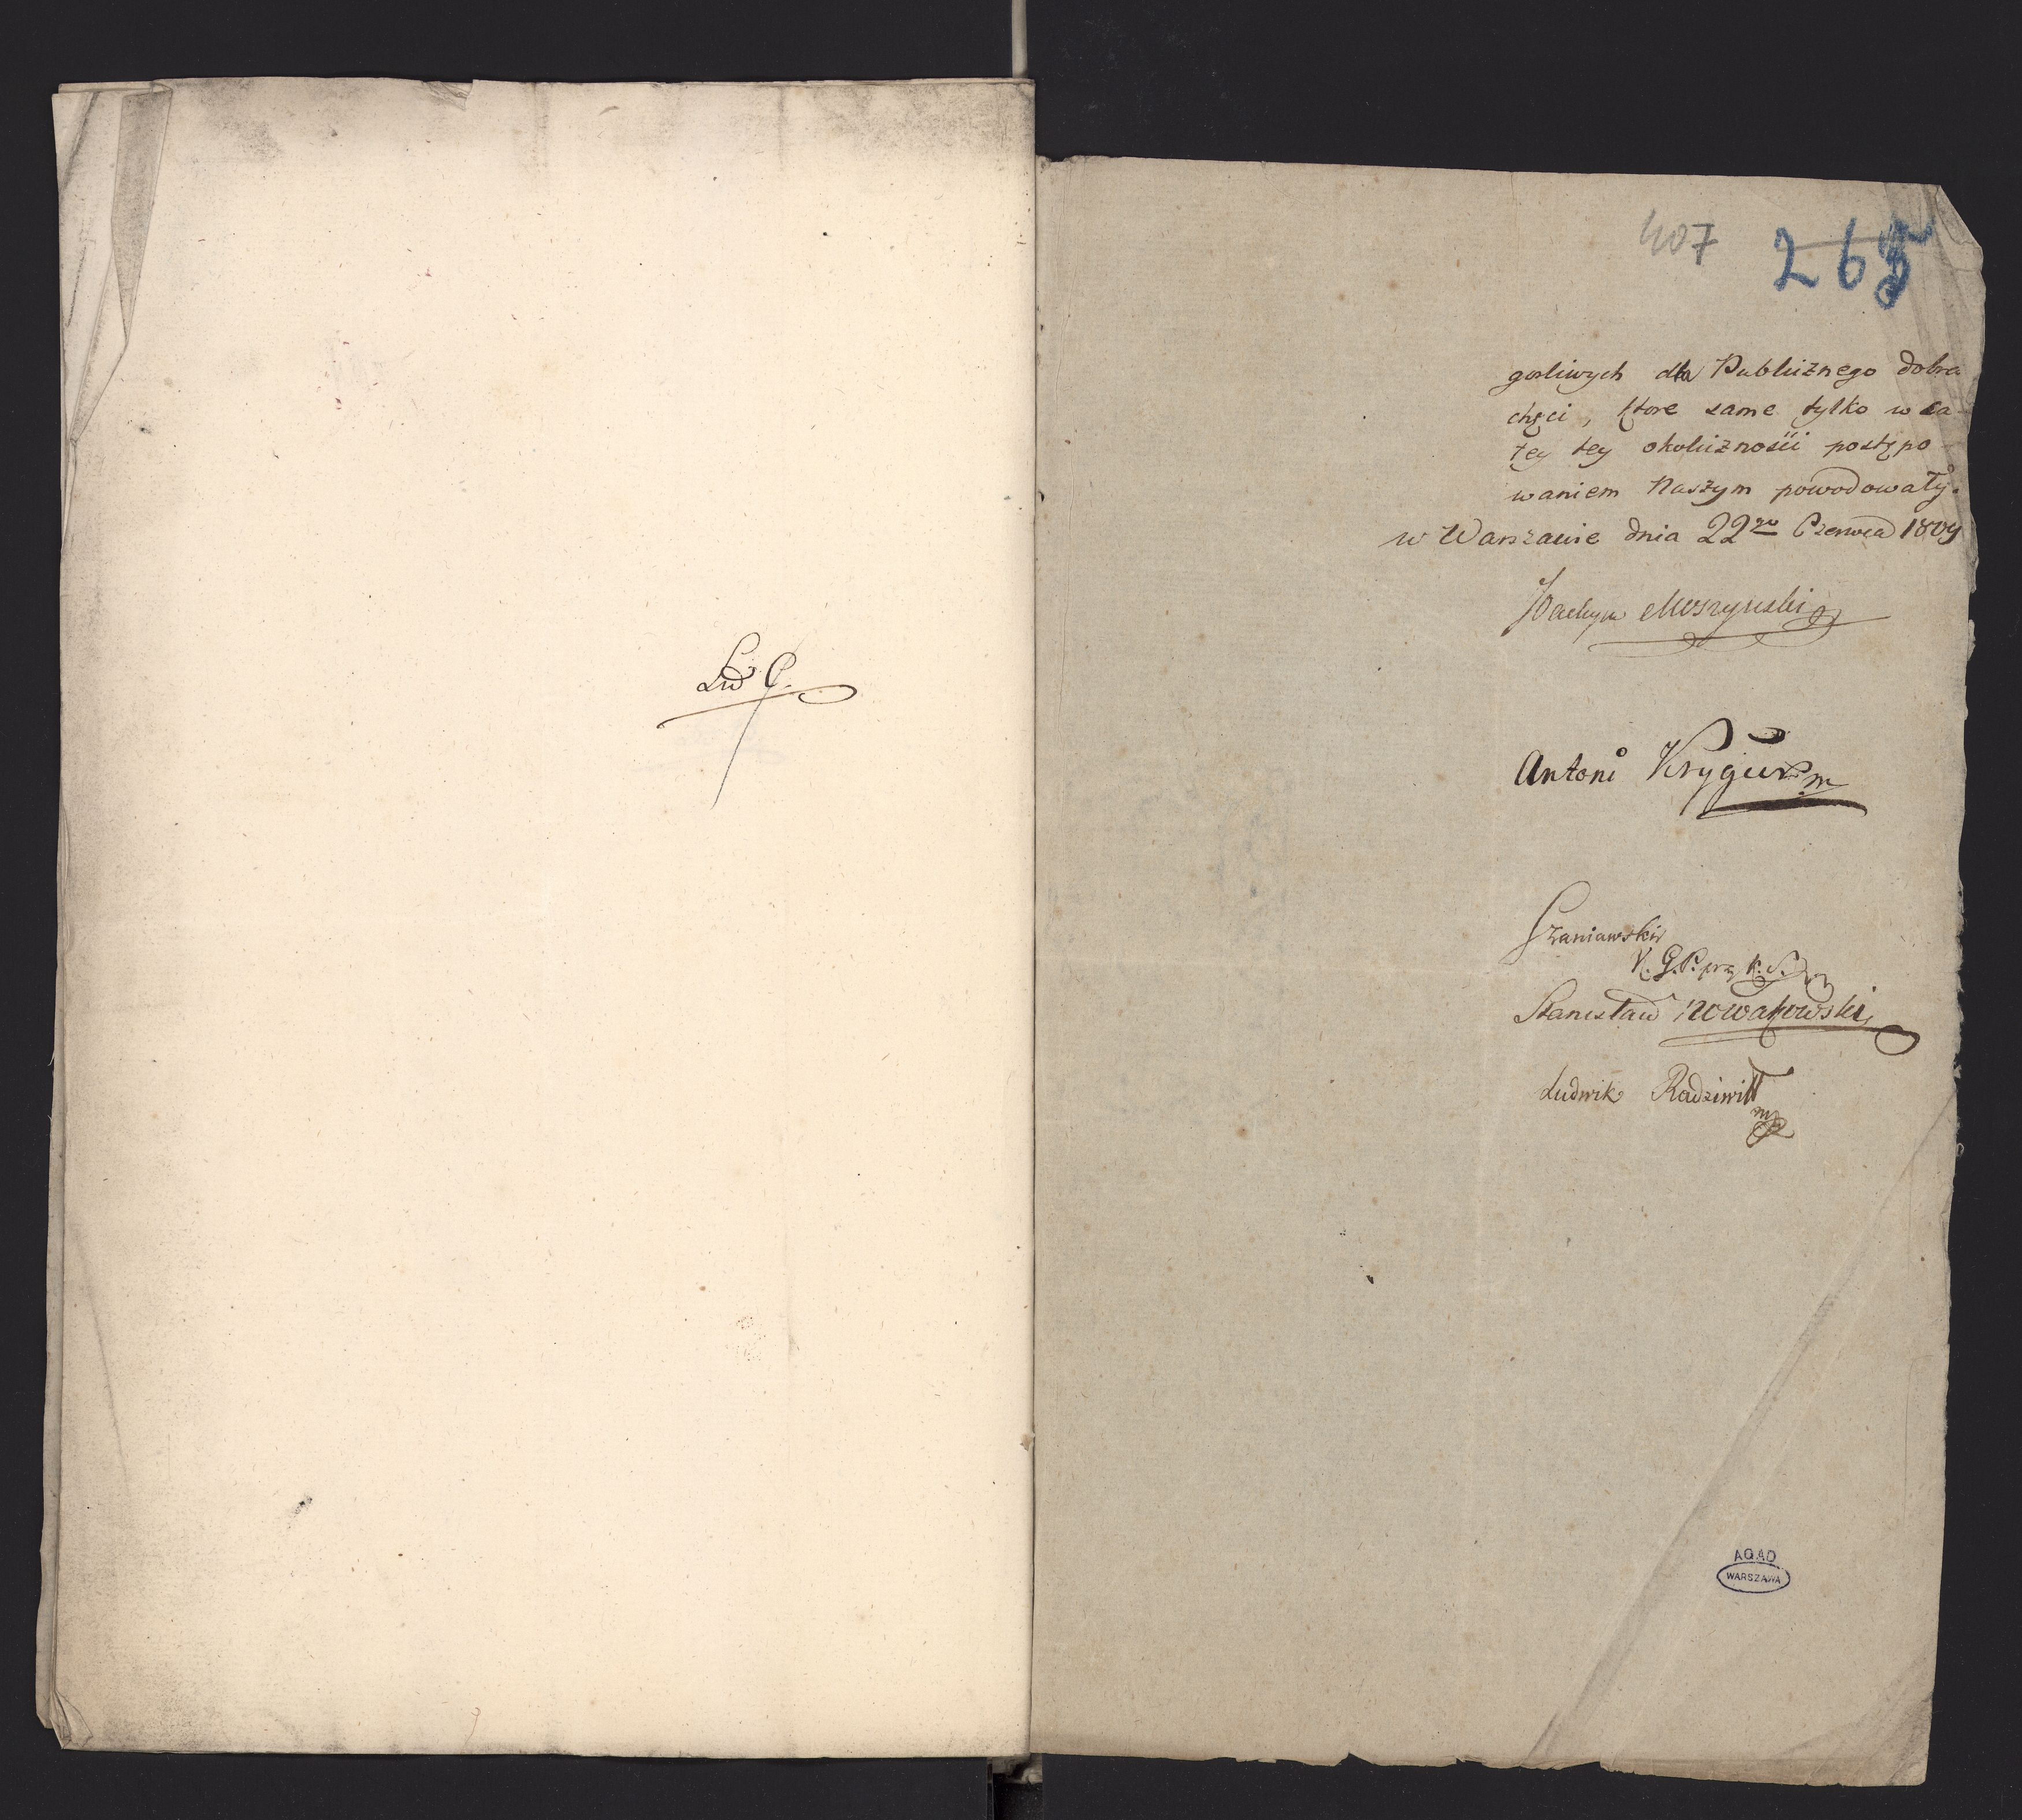 Lud G.
407 265
gorliwych dla Publicznego dobra
chęci, ktore same tylko w ca-
łey tey okoliczności postępo-
waniem Naszym powodowały.
w Warszawie dnia 22go Czerwca 1809
Joachym Moszyński
Antoni Krygier mp
Szaniawski
K. G. P. przy K. S.
Stanisław Nowakowski
Ludwik Radziwiłł
mp
AGAD
WARSZAWA